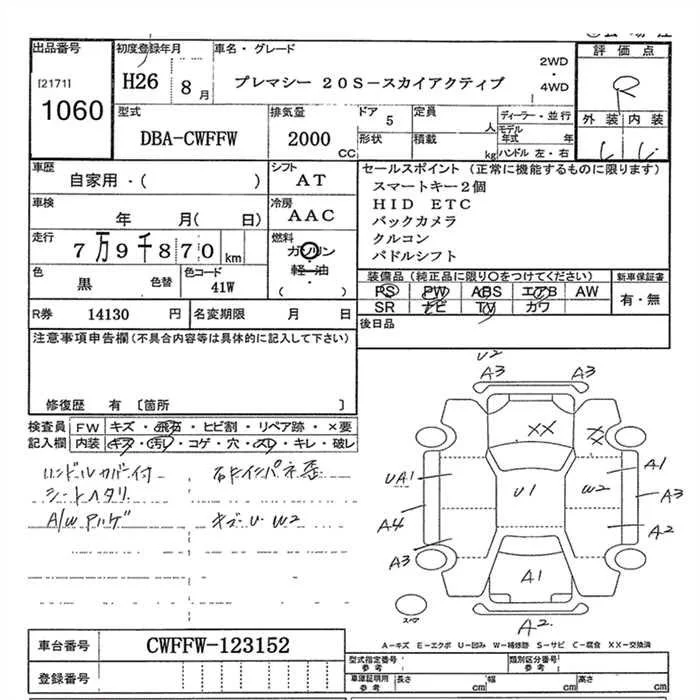 出品番号
[2171]
1060
初度登録年月
H26 8月
車名・グレード
プレマシー 20S-スカイアクティブ
2WD
・
4WD
評価点
R
外装 内装
型式
DBA-CWFFW
排気量
2000
CC
ドア
5
定員
人
ディーラー・並行
モデル年式 年
形状
積載
kg
ハンドル 左・右
車歴
自家用・( )
シフト
AT
車検
年 月( 日)
冷房
AAC
走行
7万9千870
km
燃料
ガソリン
・
軽油
・
( )
色
黒
色替
色コード
41W
R券 14130 円
名変期限 月 日
セールスポイント (正常に機能するものに限ります)
スマートキー2個
HID ETC
バックカメラ
クルコン
パドルシフト
装備品(純正品に限り○をつけてください)
PS PW ABS エアB AW
SR ナビ TV カワ
新車保証書
有・無
後日品
注意事項申告欄(不具合内容等は具体的に記入して下さい)
修復歴 有 〔箇所 〕
検査員
記入欄
FW キズ・飛石・ヒビ割・リペア跡・×要
内装 キズ・汚レ・コゲ・穴・スレ・キレ・破レ
ハンドルカバー付
シートヘタリ
A/W
キズ・U・W2
U2
A3
A3
XX
XX
UA1
U1
W2
A1
A3
A4
A2
A3
A1
A2
A-キズ E-エクボ U-凹み W-補修跡 S-サビ C-腐食 XX-交換済
車台番号
CWFFW-123152
登録番号
型式指定番号
参考
類別区分番号
参考
車庫証明用
参考
長さ cm
幅 cm
高さ cm